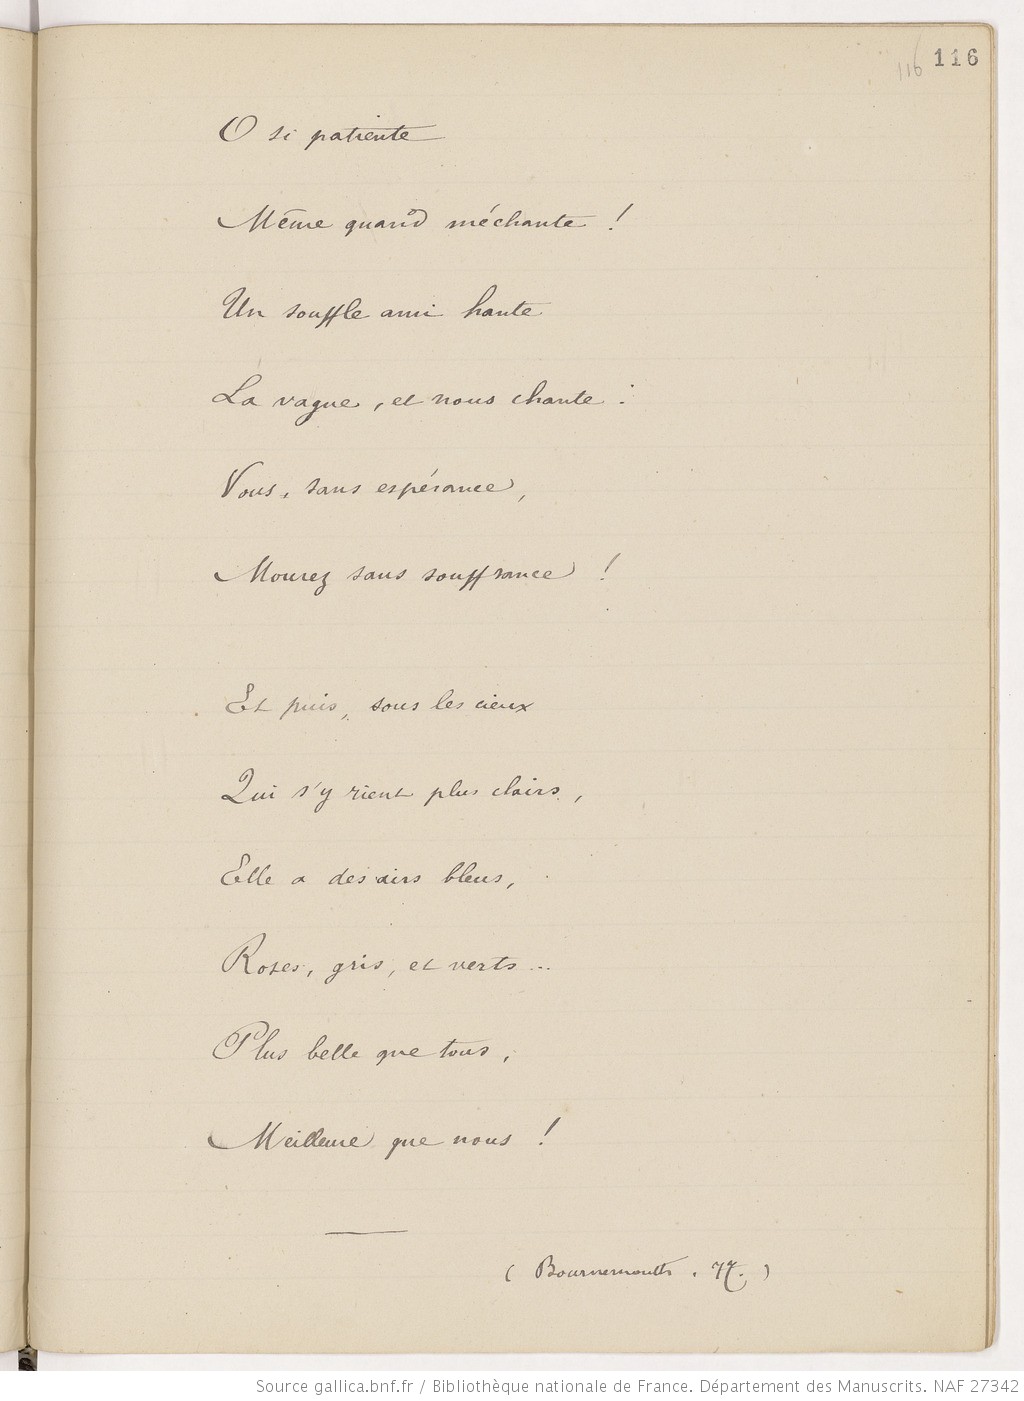 116 116
O si patiente
Même quand méchante !
Un souffle ami hante
La vague, et nous chante :
Vous, sans espérance,
Mourez sans souffrance !
Et puis, sous les cieux
Qui s'y rient plus clairs,
Elle a des airs bleus,
Roses, gris, et verts...
Plus belle que tous,
Meilleure que nous !
( Bournemouth. 77. )
Source gallica.bnf.fr / Bibliothèque nationale de France. Département des Manuscrits. NAF 27342